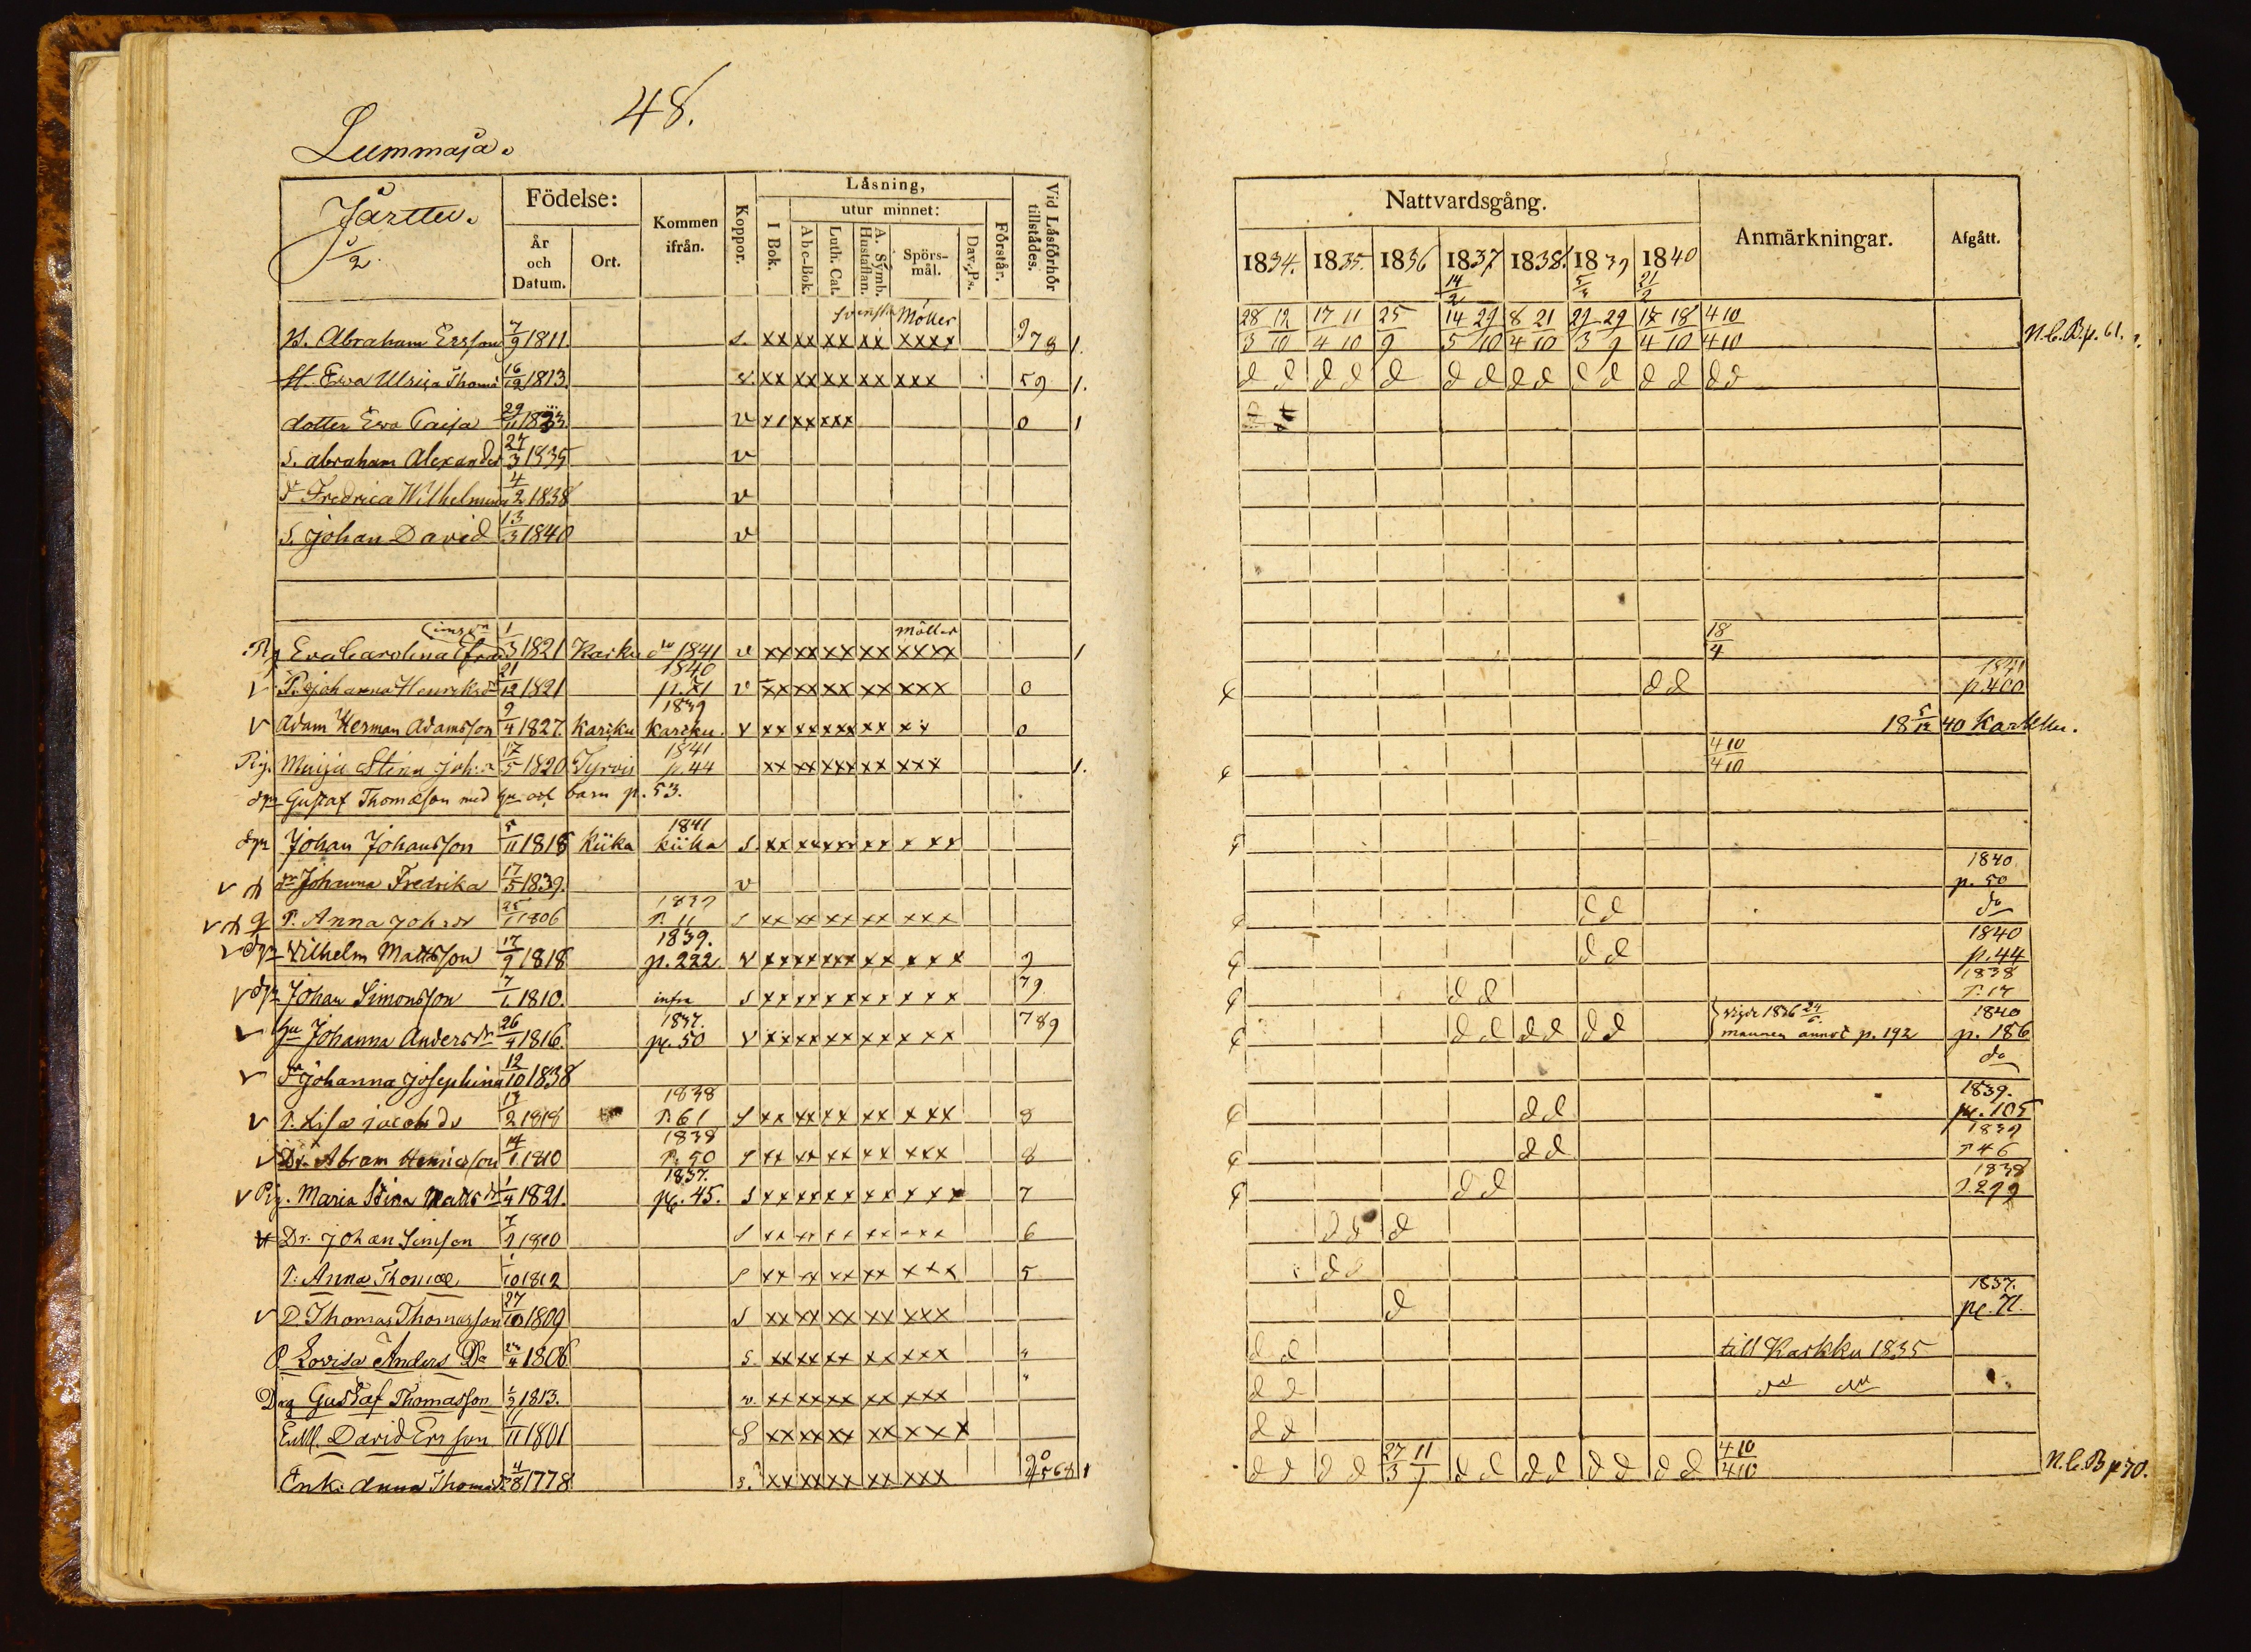 48.
Lummaja.
Järttu.
1/2.
Födelse:
År och Datum.
Ort.
Kommen ifrån.
Koppor.
Låsning,
I Bok.
utur minnet:
Abc-Bok.
Luth. Cat.
A. Symb. Hustaflan.
Spörs-mål.
Dav. Ps.
Förstår.
Vid Låsförhör tillstådes.
Nattvardsgång.
1834. 1835. 1836 1837 1838. 1839 1840
Anmärkningar.
Afgått.
14/2 21/2
Svenska Möller
B. Abraham Ersson 7/9 1811 s. xx xx xx xx xxxx 978 1. 28/3 12/10 17/4 11/10 25/9 14/5 29/10 8/4 21/10 29/3 29/9 18/4 18/10 4 10 4 10 N.C.B.p. 61.
H. Eva Ulrica Thoms 16/12 1813. v. xx xx xx xx xxx 59 1. d d d d d d d d d d d d d d d
dotter Eva Caisa 29/11 1833 v xx xx xxx 0 1
S. abraham Alexander 27/3 1835 v
dr Fredrica Wilhelmina 4/2 1838 v
S. Johan David 13/3 1840 v
Möller
Pig Eva Carolina 1/3 1821 Karku 1841 v xx xx xx xx xxxx 1 18/4
v P. Johanna Henriksdr 21/12 1821 1840 p. 71 v xx xx xx xx xxx 0 d d 1841 p. 400
v Adam Herman Adamsson 9/4 1827. Karcku 1839 Karcku. v xx xx xxx xx xx 0 18 5/12 40 Karkku.
Pig. Maija Stina Joh.dr 17/5 1820 Tyrvis 1841 p. 44 xx xx xxx xx xxx 1. 4 10 4 10
drg Gustaf Thomasson med hu och barn p. 53.
drg Johan Johansson 5/11 1818 Kiika 1841 Kiika s. xx xx xxx xx x xx
v dr Johanna Fredrika 17/5 1839. v 1840 p. 50
v P. Anna Johsdr 25/1 1806 1839 P. 11 s xx xx xx xx xxx d d do
v drg Vilhelm Mattsson 17/9 1818 1839. p. 222. v xx xx xxx xx xxx 9 d d 1840 p. 44
v drg Johan Simonsson 7/1 1810. infra s xx xx xx xx xxx 79 d d 1838 P. 17
v hu Johanna Andersdr 26/4 1816. 1837. pg. 50 v xx xx xx xx xxx 789 d d d d d d vigde 1836 24/6. mannen annot p. 192 1840 p. 186
v dr Johanna Josephina 12/10 1838 do
v P. Lisa Jacobsdr 13/2 1818 1838 P. 61 s xx xx xx xx xxx 8 d d 1839. pg. 105
v Dr. Abram Henricsson 14/1 1810 1838 P. 50 s xx xx xx xx xxx 8 d d 1839 P 46
v Pig. Maria Stina Mattsdr 1/4 1821. 1837. pg. 45. s xx xx xx xx xxx 7 d d 1838 P. 299
Dr. Johan Simson 7/1 1810 s xx xx xx xx xxx 6 d d d
P. Anna Thomae 1/10 1812 s xx xx xx xx xxx 5 d d
v D. Thomas Thomasson 27/10 1809 s xx xx xx xx xxx d 1837. pg. 71.
P. Lovisa Anders Dr 24/4 1806 s. xx xx xx xx xxx " d d till Karkku 1835
Drg Gustaf Thomasson 1/3 1813. v. xx xx xx xx xxx " d d do do
Enkl. David Ersson 11/11 1801 S xx xx xx xx xxx d d
Enk: Anna Thomsdr 4/8 1778 s. xx xx xx xx xxx 1 d d d d 27/3 11/9 d d d d d d d d 4 10 4 10 N.C.B p 70.